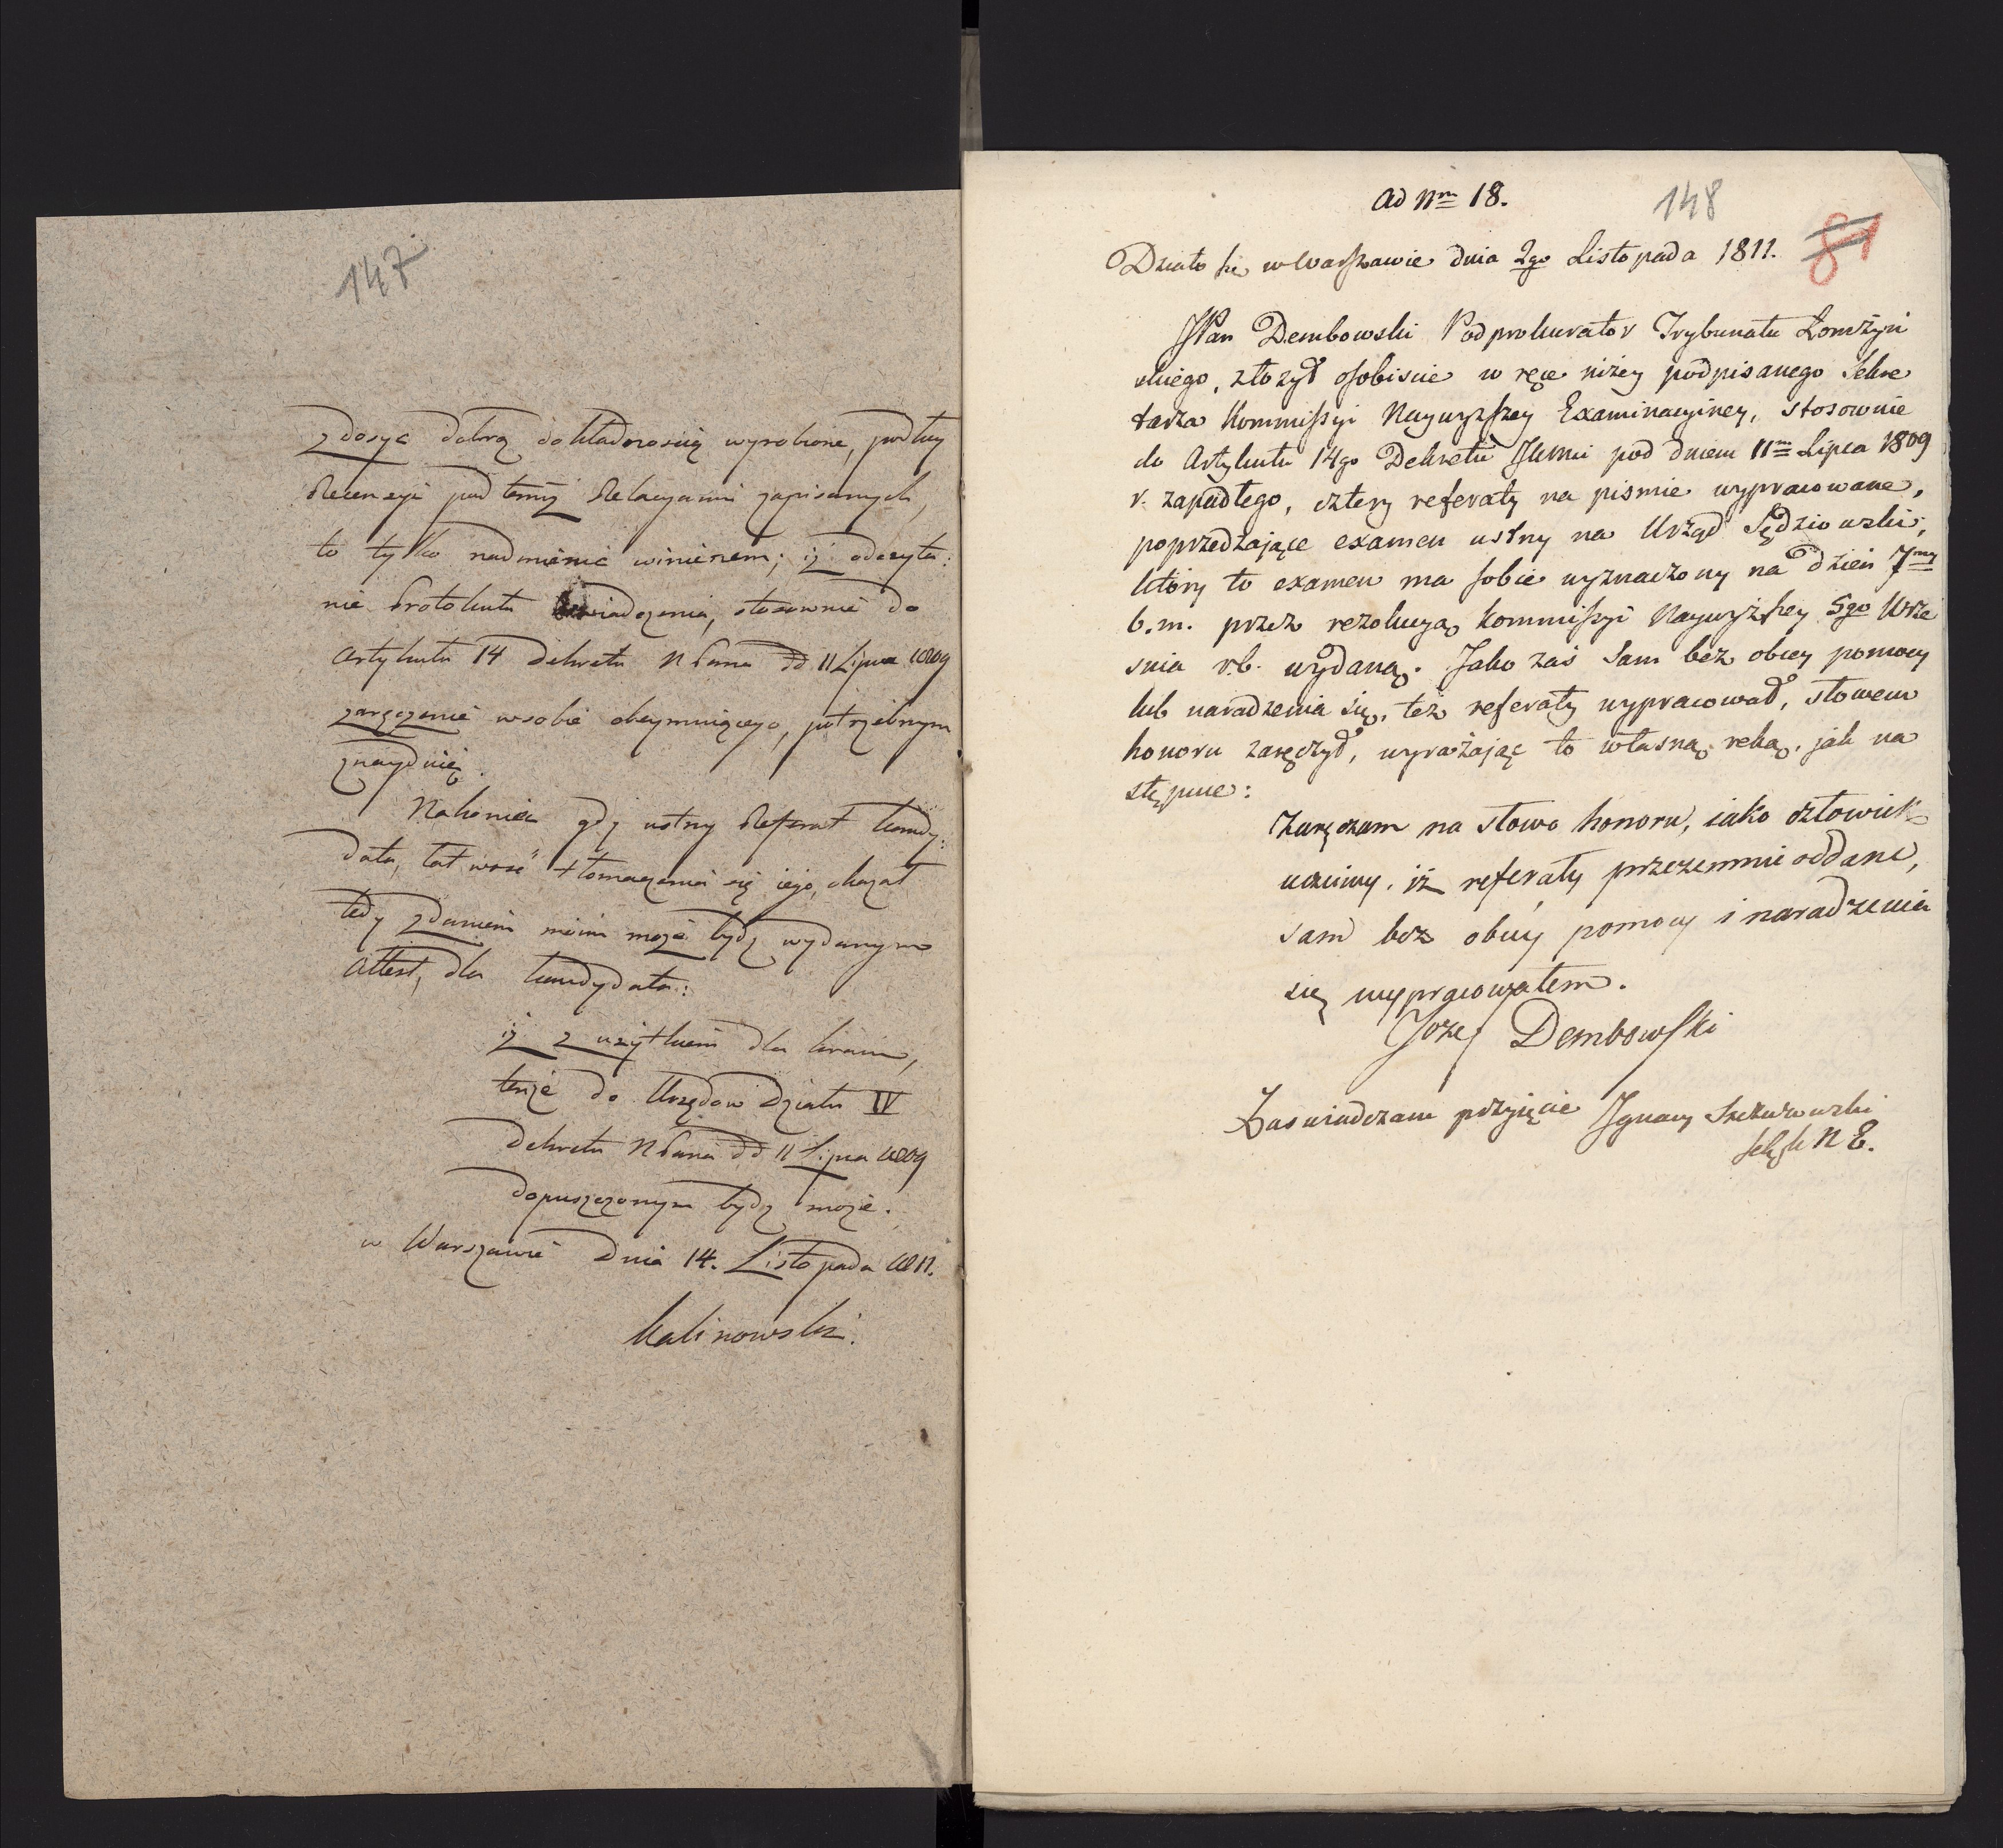 147
z dosyć dobrą dokładnością wyrobione, podług
Recenzyi pod temiż Relacyami zapisanych,
to tylko nadmienić winienem; iż odczyta:
nie Protokułu świadczenia, stosownie do
Artykułu 14 Dekretu N Pana dd 11 Lipca 1809
zaręczenie w sobie obeymuiącego, potrzebnym
znayduię.
Nakoniec gdy ustny Referat kandy:
data, łatwość tłomaczenia się iego, okazał
tedy zdaniem moim może bydź wydanym
Attest, dla kandydata:
iż z użytkiem dla kraiu,
tenże do Urzędów Działu IV
Dekretu N Pana dd 11 Lipca 1809
dopuszczonym bydź może.
w Warszawie dnia 14. Listopada 1811.
Kalinowski.
Ad Nm 18.
148
81
Działo się w Warszawie dnia 2go Listopada 1811.
JPan Dembowski Podprokurator Trybunału Łomżyń
skiego, złożył osobiscie w ręce niżey podpisanego Sekre
tarza Kommissyi Naywyższey Examinacyiney, stosownie
do Artykułu 14go Dekretu JKMci pod dniem 11m Lipca 1809
r. zapadłego, cztery referaty na pismie wypracowane,
poprzedzające examen ustny na Urząd Sędziowski,
który to examen ma sobie wyznaczony na dzień 7my
b.m. przez rezolucyą Kommissyi Naywyższey 5go Wrze
snia r.b. wydaną. Jako zaś sam bez obcey pomocy
lub naradzenia się, też referaty wypracował, słowem
honoru zaręczył, wyrażając to własną ręką, jak na
stępuie:
Zaręczam na słowo honoru, iako człowiek
uczciwy, iż referaty przezemnie oddane,
sam bez obcy pomocy i naradzenia
się wypracowałem.
Jozef Dembowski
Zaswiadczam przyjęcie Ignacy
N E.